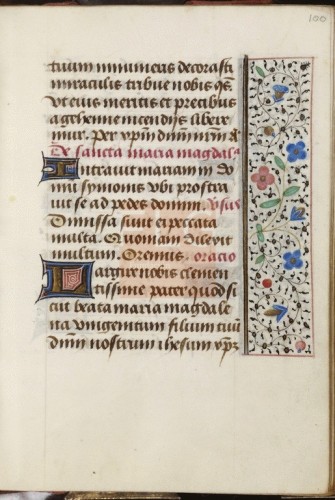 100
tuum innumeris decorasti
miraculis tribue nobis qs.
Ut eius meritis et precibus
a gehenne incendiis libere
mur. Per xpm dnm nrm &
De sancta maria magdal
Intravit mariam in do
mu symonis ubi prostra
vit se ad pedes domini. Vsus
Dimissa sunt ei peccata
multa. Quoniam dilexit
multum. Oremus. oracio
Largire nobis clemen
tissime pater quod si
cut beata maria magdale
na unigenitum filium tuu
dnm nostrum ihesum xpm